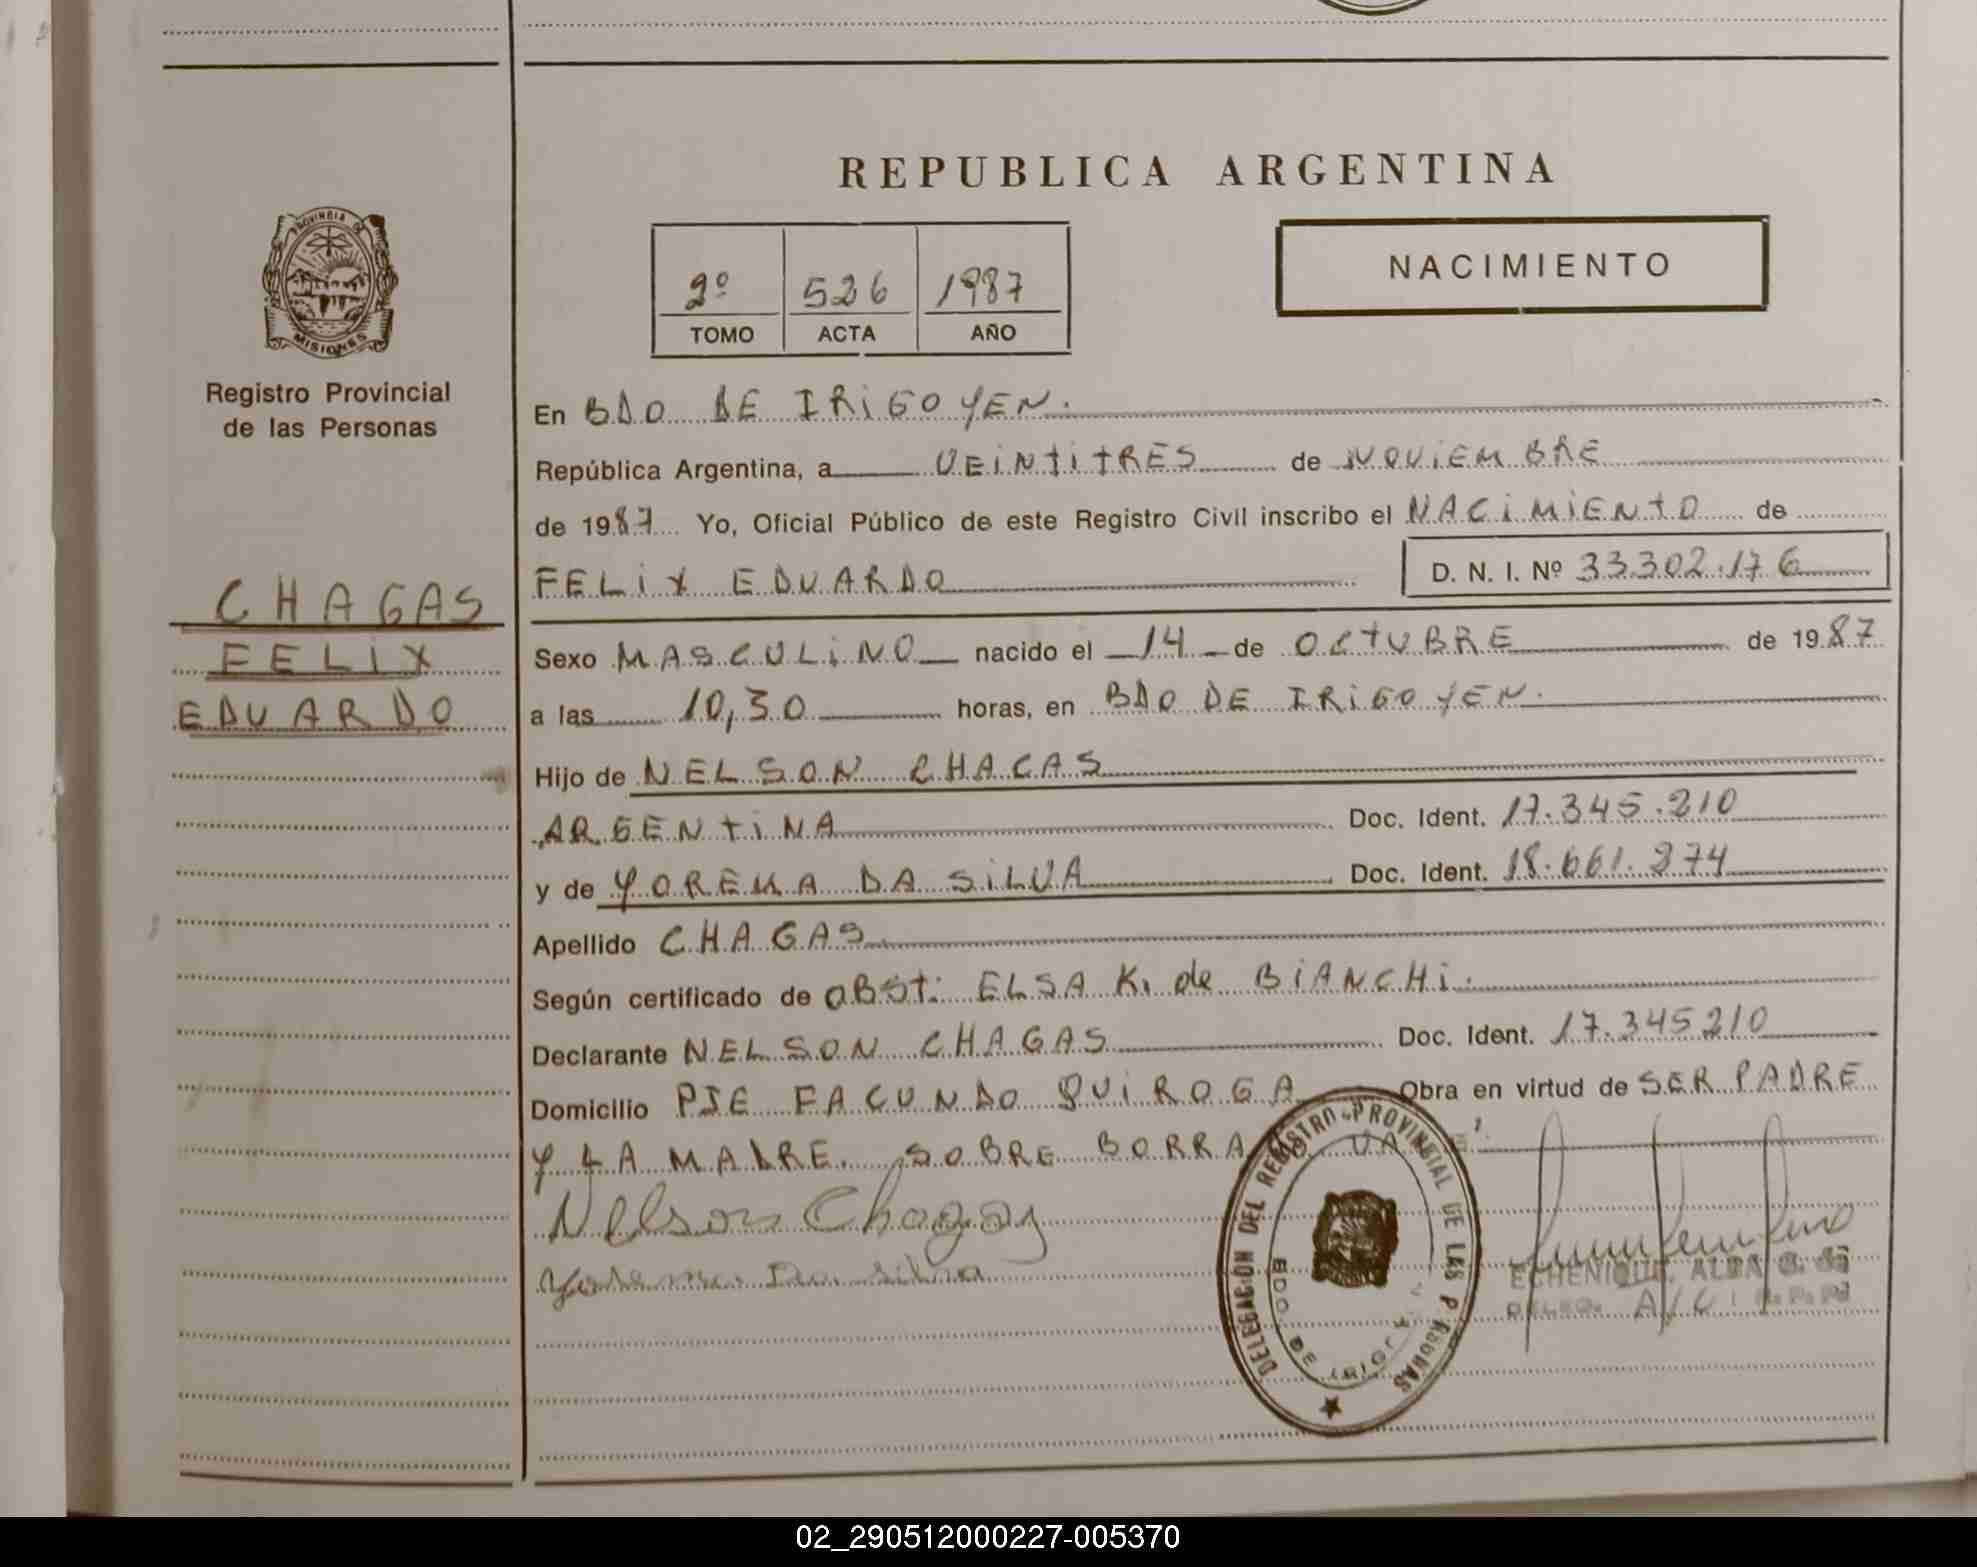 REPUBLICA ARGENTINA
PROVINCIA DE
MISIONES
Registro Provincial
de las Personas
2º 526 1987
TOMO ACTA AÑO
NACIMIENTO
En BDO DE IRIGOYEN.
República Argentina, a VEINTITRES de NOVIEMBRE
de 1987 Yo, Oficial Público de este Registro Civil inscribo el NACIMIENTO de
FELIX EDUARDO D. N. I. Nº 33.302.176
CHAGAS
FELIX
EDUARDO
Sexo MASCULINO nacido el 14 de OCTUBRE de 1987
a las 10,30 horas, en BDO DE IRIGOYEN.
Hijo de NELSON CHAGAS
ARGENTINA Doc. Ident. 17.345.210
y de YOREMA DA SILVA Doc. Ident. 18.661.274
Apellido CHAGAS
Según certificado de OBST: ELSA K. de BIANCHI.
Declarante NELSON CHAGAS Doc. Ident. 17.345210
Domicilio PJE FACUNDO QUIROGA Obra en virtud de SER PADRE
Y LA MADRE. SOBRE BORRADO VA
Nelson Chagas
Yorema Da Silva
DELEGACION DEL REGISTRO PROVINCIAL DE LAS PERSONAS
BDO. DE IRIGOYEN
ECHENIQUE, ALBA
DELEG.
02_290512000227-005370